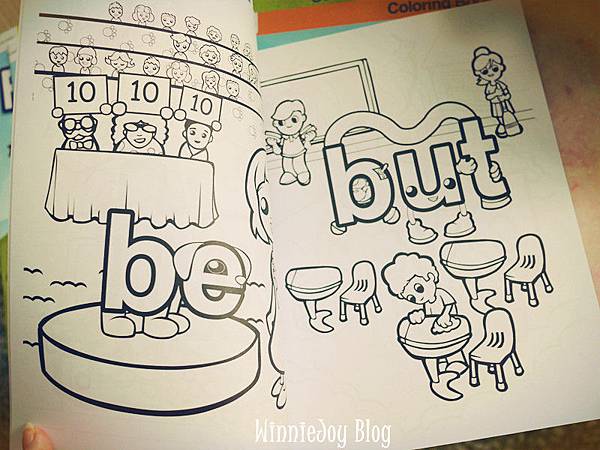 Coloring Bo
10 10 10
be
but
WinnieJoy Blog